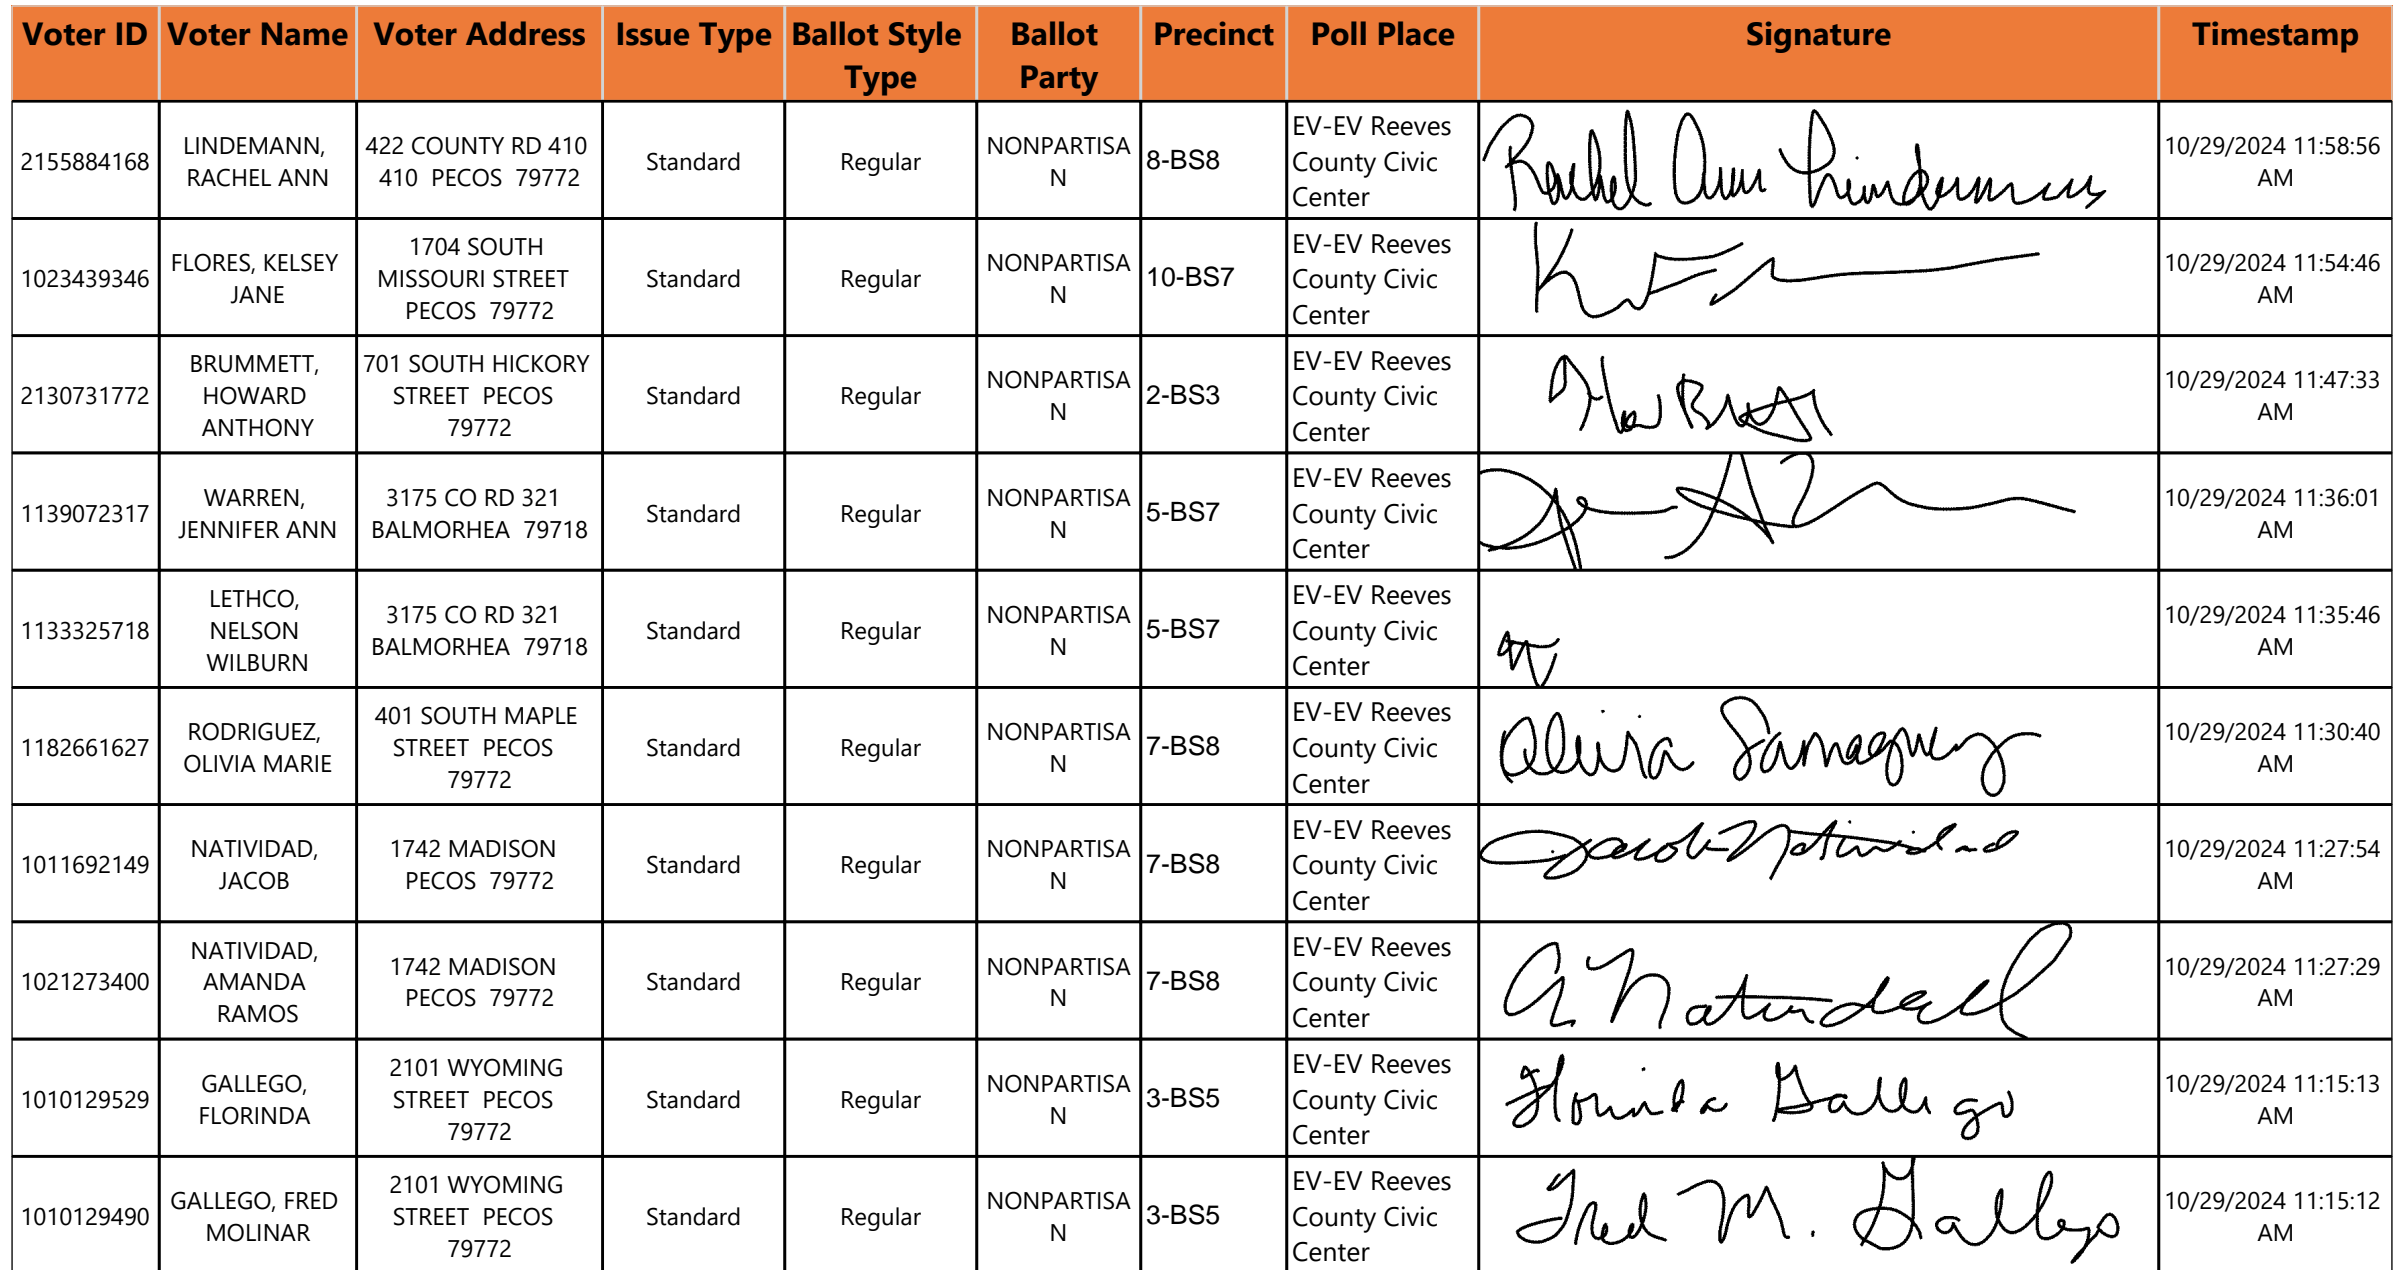 Voter ID Voter Name Voter Address Issue Type Ballot Style Type Ballot Party Precinct Poll Place Signature Timestamp
2155884168 LINDEMANN, RACHEL ANN 422 COUNTY RD 410 410 PECOS 79772 Standard Regular NONPARTISAN 8-BS8 EV-EV Reeves County Civic Center Rachel Ann Lindemann 10/29/2024 11:58:56 AM
1023439346 FLORES, KELSEY JANE 1704 SOUTH MISSOURI STREET PECOS 79772 Standard Regular NONPARTISAN 10-BS7 EV-EV Reeves County Civic Center 10/29/2024 11:54:46 AM
2130731772 BRUMMETT, HOWARD ANTHONY 701 SOUTH HICKORY STREET PECOS 79772 Standard Regular NONPARTISAN 2-BS3 EV-EV Reeves County Civic Center 10/29/2024 11:47:33 AM
1139072317 WARREN, JENNIFER ANN 3175 CO RD 321 BALMORHEA 79718 Standard Regular NONPARTISAN 5-BS7 EV-EV Reeves County Civic Center 10/29/2024 11:36:01 AM
1133325718 LETHCO, NELSON WILBURN 3175 CO RD 321 BALMORHEA 79718 Standard Regular NONPARTISAN 5-BS7 EV-EV Reeves County Civic Center 10/29/2024 11:35:46 AM
1182661627 RODRIGUEZ, OLIVIA MARIE 401 SOUTH MAPLE STREET PECOS 79772 Standard Regular NONPARTISAN 7-BS8 EV-EV Reeves County Civic Center Olivia 10/29/2024 11:30:40 AM
1011692149 NATIVIDAD, JACOB 1742 MADISON PECOS 79772 Standard Regular NONPARTISAN 7-BS8 EV-EV Reeves County Civic Center Jacob Natividad 10/29/2024 11:27:54 AM
1021273400 NATIVIDAD, AMANDA RAMOS 1742 MADISON PECOS 79772 Standard Regular NONPARTISAN 7-BS8 EV-EV Reeves County Civic Center A Natividad 10/29/2024 11:27:29 AM
1010129529 GALLEGO, FLORINDA 2101 WYOMING STREET PECOS 79772 Standard Regular NONPARTISAN 3-BS5 EV-EV Reeves County Civic Center Florinda Gallego 10/29/2024 11:15:13 AM
1010129490 GALLEGO, FRED MOLINAR 2101 WYOMING STREET PECOS 79772 Standard Regular NONPARTISAN 3-BS5 EV-EV Reeves County Civic Center Fred M. Gallego 10/29/2024 11:15:12 AM